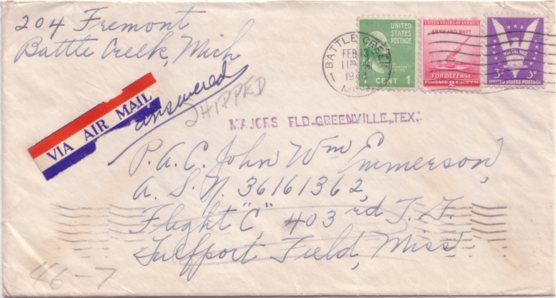 204 Fremont
Battle Creek, Mich
BATTLE CREEK
FEB
11
MICH
UNITED
STATES
POSTAGE
1 CENT 1
ARMY AND NAVY
FOR DEFENSE
WIN THE WAR
3¢
UNITED STATES POSTAGE
VIA AIR MAIL
answered
SHIPPED
MAJORS FLD. GREENVILLE, TEX.
P.A.C. John Wm Emmerson,
A.S.N. 36161362,
Flight "C" 403rd T.F.
Gulfport Field, Miss.
46-7